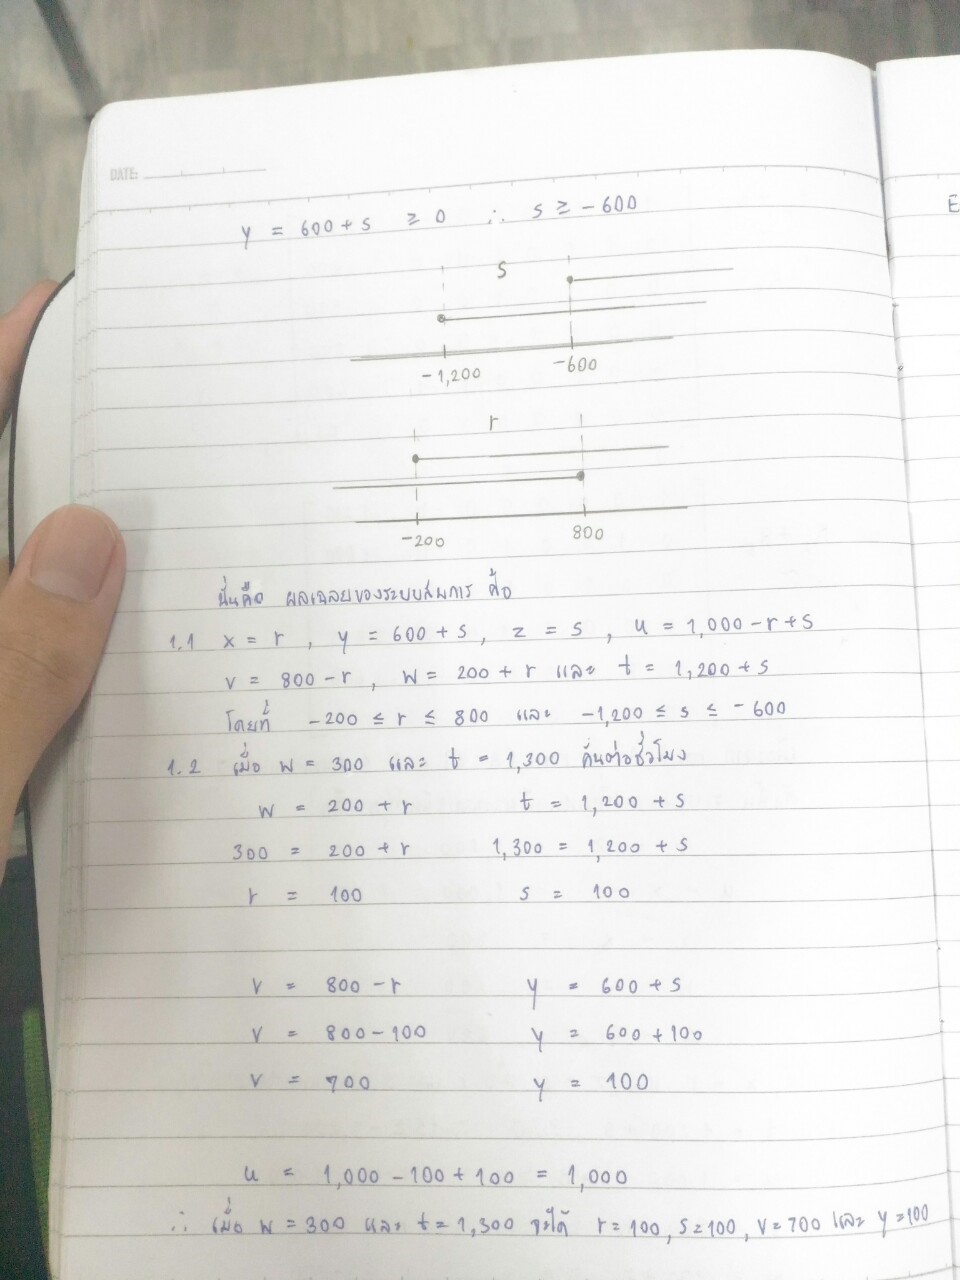 DATE:
E
y = 600 + s ≥ 0 ∴ s ≥ -600
s
-1,200 -600
r
-200 800
นั่นคือ ผลเฉลยของระบบสมการ คือ
1.1 x = r , y = 600 + s , z = s , u = 1,000 - r + s
v = 800 - r , w = 200 + r และ t = 1,200 + s
โดยที่ -200 ≤ r ≤ 800 และ -1,200 ≤ s ≤ -600
1.2 เมื่อ w = 300 และ t = 1,300 คันต่อชั่วโมง
w = 200 + r t = 1,200 + s
300 = 200 + r 1,300 = 1,200 + s
r = 100 s = 100
v = 800 - r y = 600 + s
v = 800 - 100 y = 600 + 100
v = 700 y = 100
u = 1,000 - 100 + 100 = 1,000
∴ เมื่อ w = 300 และ t = 1,300 จะได้ r = 100 , s = 100 , v = 700 และ y = 100